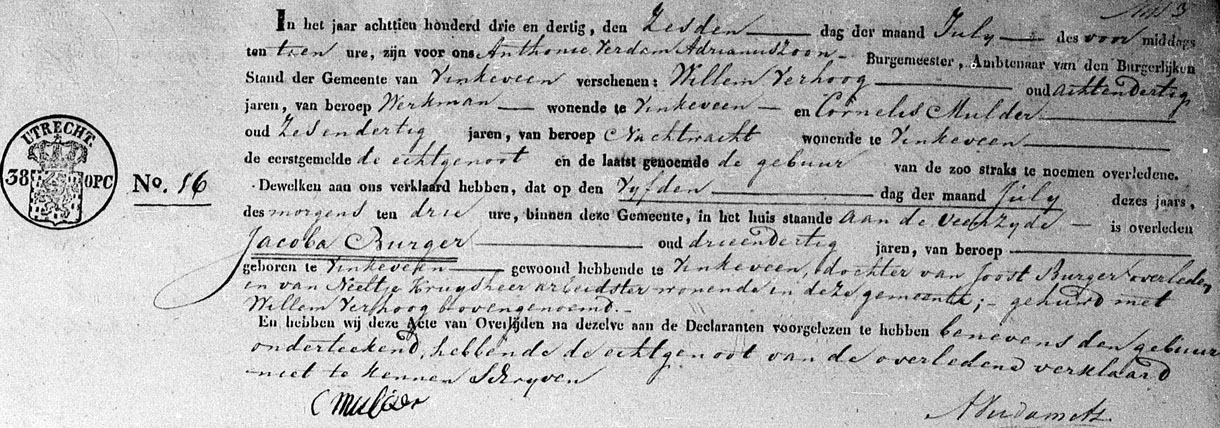 In het jaar achttien honderd drie en dertig, den Zesden dag der maand July des voor middags
ten tien ure, zijn voor ons Anthonie Verdam Adrianuszoon Burgemeester, Ambtenaar van den Burgerlijken
Stand der Gemeente van Vinkeveen verschenen: Willem Verhoog oud achtendertig
jaren, van beroep Werkman wonende te Vinkeveen en Cornelis Mulder
oud Zesendertig jaren, van beroep Nachtwacht wonende te Vinkeveen
de eerstgemelde de echtgenoot en de laatst genoemde de gebuur van de zoo straks te noemen overledene.
UTRECHT.
38 OPC
No. 16
Dewelken aan ons verklaard hebben, dat op den Vyfden dag der maand July dezes jaars,
des morgens ten drie ure, binnen deze Gemeente, in het huis staande aan de Veenzyde is overleden
Jacoba Burger oud drieendertig jaren, van beroep
geboren te Vinkeveen gewoond hebbende te Vinkeveen, dochter van Joost Burger overleden
en van Neeltje Kruysheer arbeidster wonende in deze gemeente; gehuwd met
Willem Verhoog bovengenoemd.
En hebben wij deze Acte van Overlijden na dezelve aan de Declaranten voorgelezen te hebben benevens den gebuur
onderteekend, hebbende de echtgenoot van de overledene verklaard
niet te kennen Schryven
C Mulder